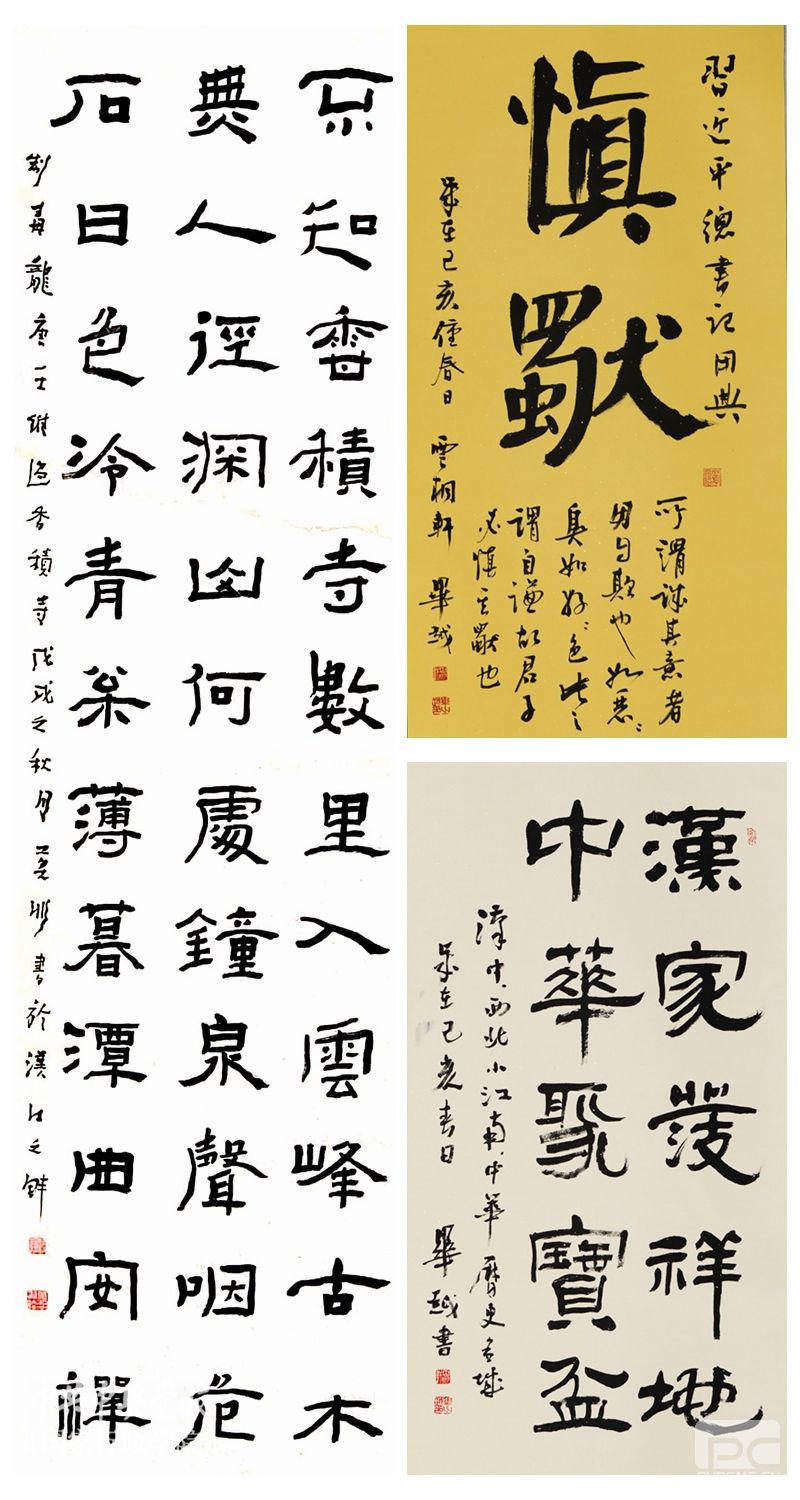 不知香積寺數里入雲峰古木
無人徑深山何處鐘泉聲咽危
石日色冷青松薄暮潭曲安禪
制毒龍唐王維過香積寺戊戌之秋月書於漢江之畔
習近平總書記用典
慎獨
所謂誠其意者
毋自欺也如惡:
臭如好:色此之
謂自謙故君子
必慎其獨也
歲在己亥仲春日 雲桐軒 畢越
漢家發祥地
中華聚寶盆
漢中西北小江南中華歷史名城
歲在己亥春日 畢越書